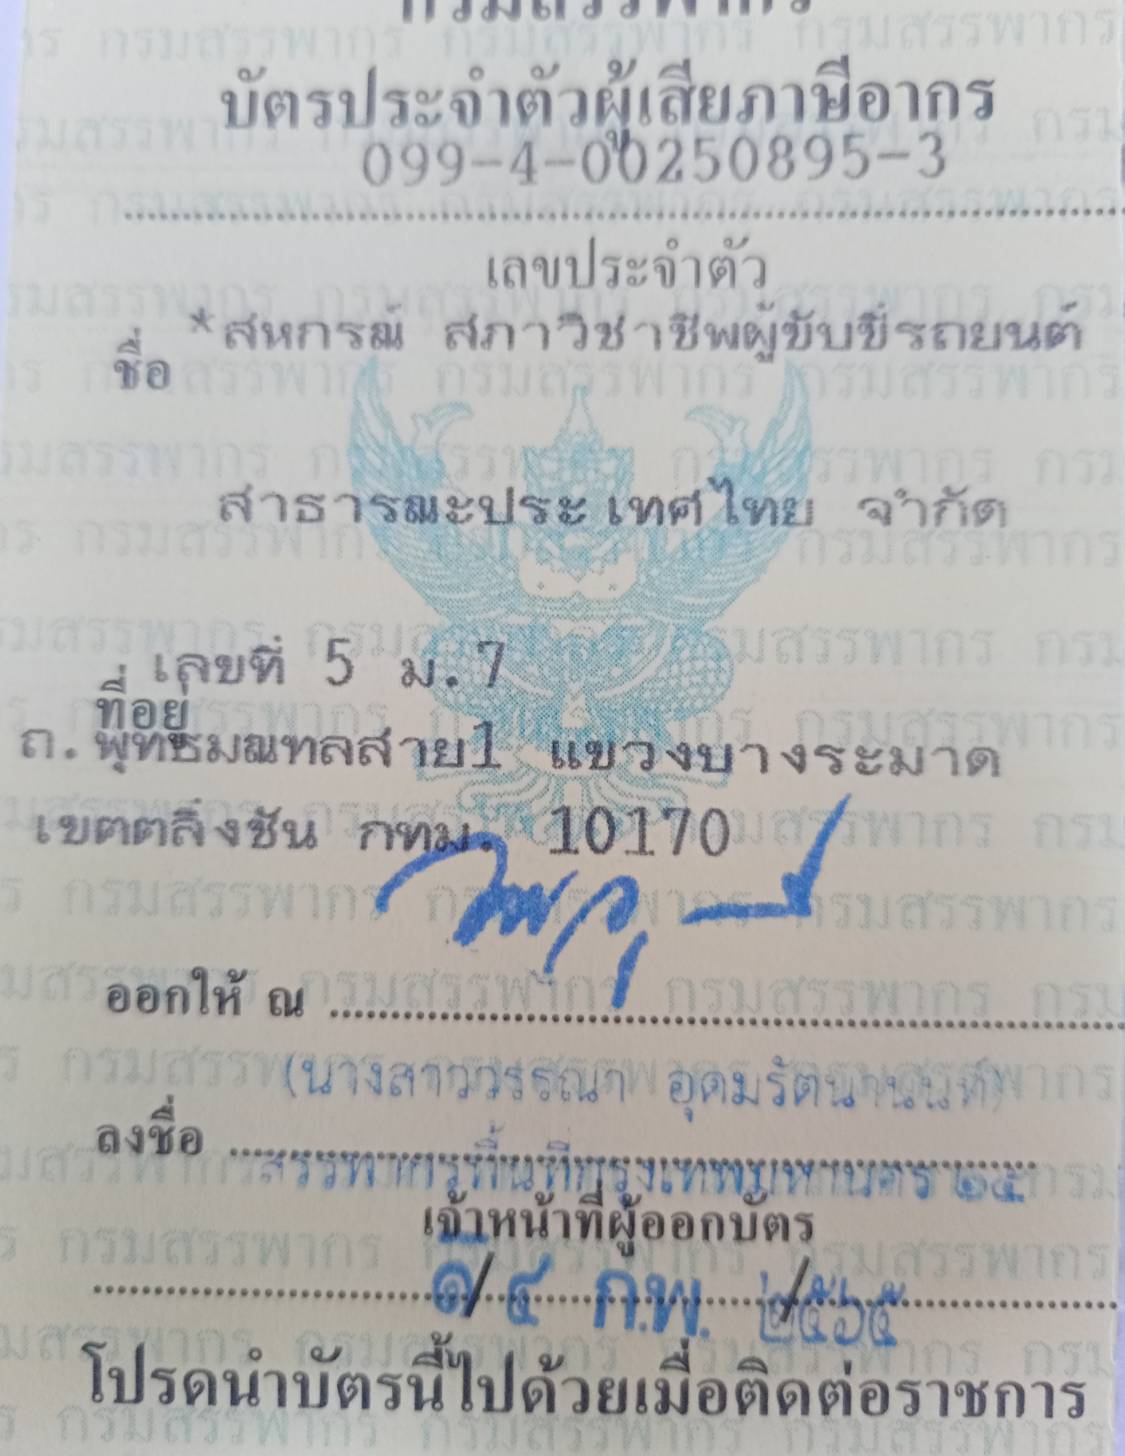 กรมสรรพากร
บัตรประจำตัวผู้เสียภาษีอากร
099-4-00250895-3
เลขประจำตัว
*สหกรณ์ สภาวิชาชีพผู้ขับขี่รถยนต์
ชื่อ
สาธารณะประเทศไทย จำกัด
เลขที่ 5 ม.7
ที่อยู่
ถ.พุทธมณฑลสาย1 แขวงบางระมาด
เขตตลิ่งชัน กทม. 10170
ออกให้ ณ
(นางสาววรรณา อุดมรัตนานนท์)
ลงชื่อ
สรรพากรพื้นที่กรุงเทพมหานคร ๒๕
เจ้าหน้าที่ผู้ออกบัตร
๑๔ ก.พ. ๒๕๖๕
โปรดนำบัตรนี้ไปด้วยเมื่อติดต่อราชการ